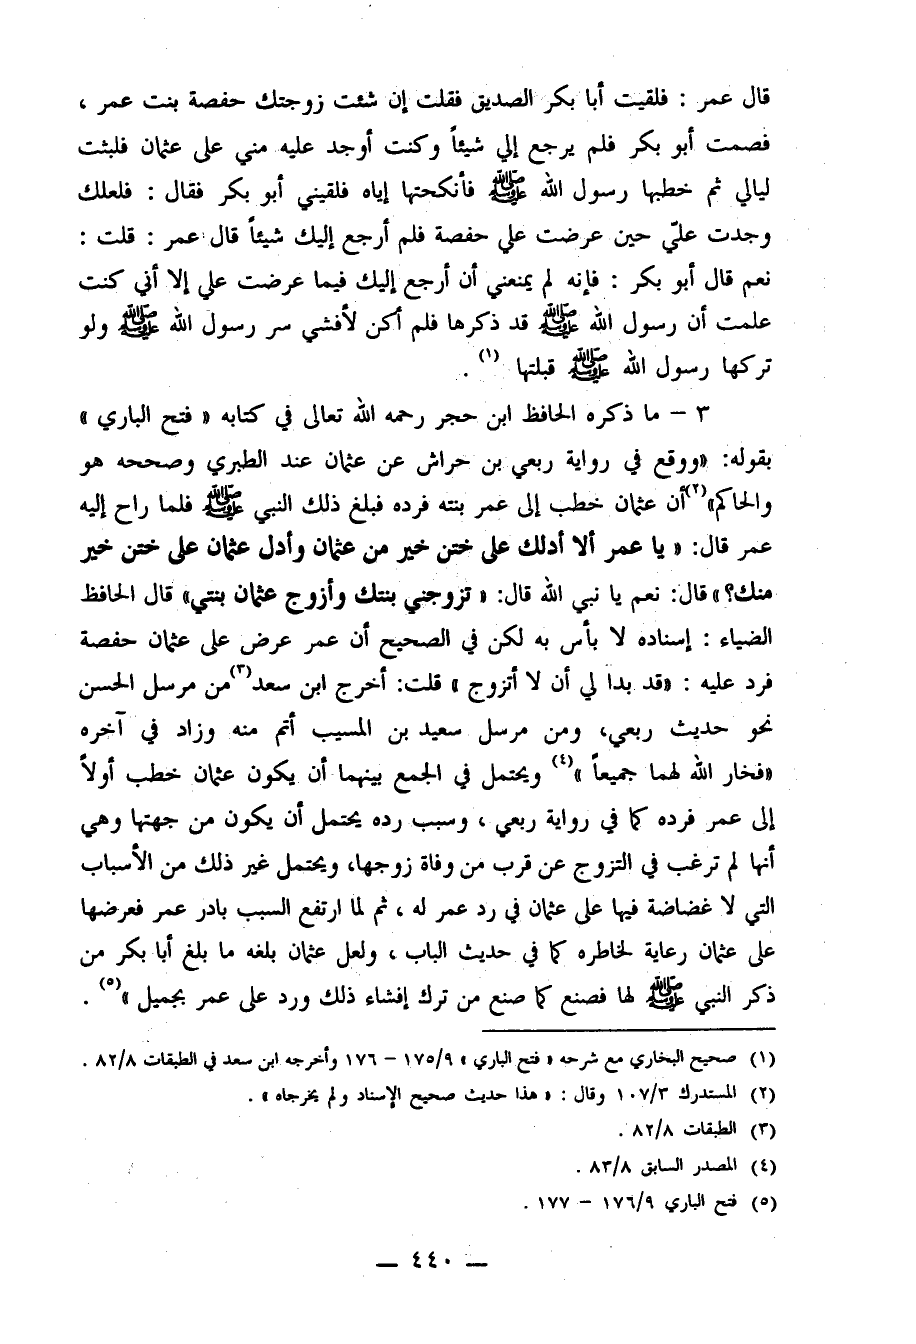 قال عمر : فلقيت أبا بكر الصديق فقلت إن شئت زوجتك حفصة بنت عمر ،
فصمت أبو بكر فلم يرجع إلي شيئاً وكنت أوجد عليه مني على عثمان فلبثت
ليالي ثم خطبها رسول الله ﷺ فأنكحتها إياه فلقيني أبو بكر فقال : فلعلك
وجدت عليّ حين عرضت علي حفصة فلم أرجع إليك شيئاً قال عمر : قلت :
نعم قال أبو بكر : فإنه لم يمنعني أن أرجع إليك فيما عرضت علي إلا أني كنت
علمت أن رسول الله ﷺ قد ذكرها فلم أكن لأفشي سر رسول الله ﷺ ولو
تركها رسول الله ﷺ قبلتها (١) .
٣ – ما ذكره الحافظ ابن حجر رحمه الله تعالى في كتابه « فتح الباري »
بقوله: «ووقع في رواية ربعي بن حراش عن عثمان عند الطبري وصححه هو
والحاكم»(٢) أن عثمان خطب إلى عمر بنته فرده فبلغ ذلك النبي ﷺ فلما راح إليه
عمر قال: « يا عمر ألا أدلك على ختن خير من عثمان وأدل عثمان على ختن خير
منك؟ » قال: نعم يا نبي الله قال: « تزوجني بنتك وأزوج عثمان بنتي» قال الحافظ
الضياء : إسناده لا بأس به لكن في الصحيح أن عمر عرض على عثمان حفصة
فرد عليه : «قد بدا لي أن لا أتزوج » قلت: أخرج ابن سعد(٣) من مرسل الحسن
نحو حديث ربعي، ومن مرسل سعيد بن المسيب أتم منه وزاد في آخره
«فخار الله لهما جميعاً »(٤) ويحتمل في الجمع بينهما أن يكون عثمان خطب أولاً
إلى عمر فرده كما في رواية ربعي ، وسبب رده يحتمل أن يكون من جهتها وهي
أنها لم ترغب في التزوج عن قرب من وفاة زوجها، ويحتمل غير ذلك من الأسباب
التي لا غضاضة فيها على عثمان في رد عمر له ، ثم لما ارتفع السبب بادر عمر فعرضها
على عثمان رعاية لخاطره كما في حديث الباب ، ولعل عثمان بلغه ما بلغ أبا بكر من
ذكر النبي ﷺ لها فصنع كما صنع من ترك إفشاء ذلك ورد على عمر بجميل »(٥) .
(١) صحيح البخاري مع شرحه « فتح الباري » ١٧٥/٩ – ١٧٦ وأخرجه ابن سعد في الطبقات ٨٢/٨ .
(٢) المستدرك ١٠٧/٣ وقال : « هذا حديث صحيح الإسناد ولم يخرجاه » .
(٣) الطبقات ٨٢/٨ .
(٤) المصدر السابق ٨٣/٨ .
(٥) فتح الباري ١٧٦/٩ – ١٧٧ .
— ٤٤٠ —